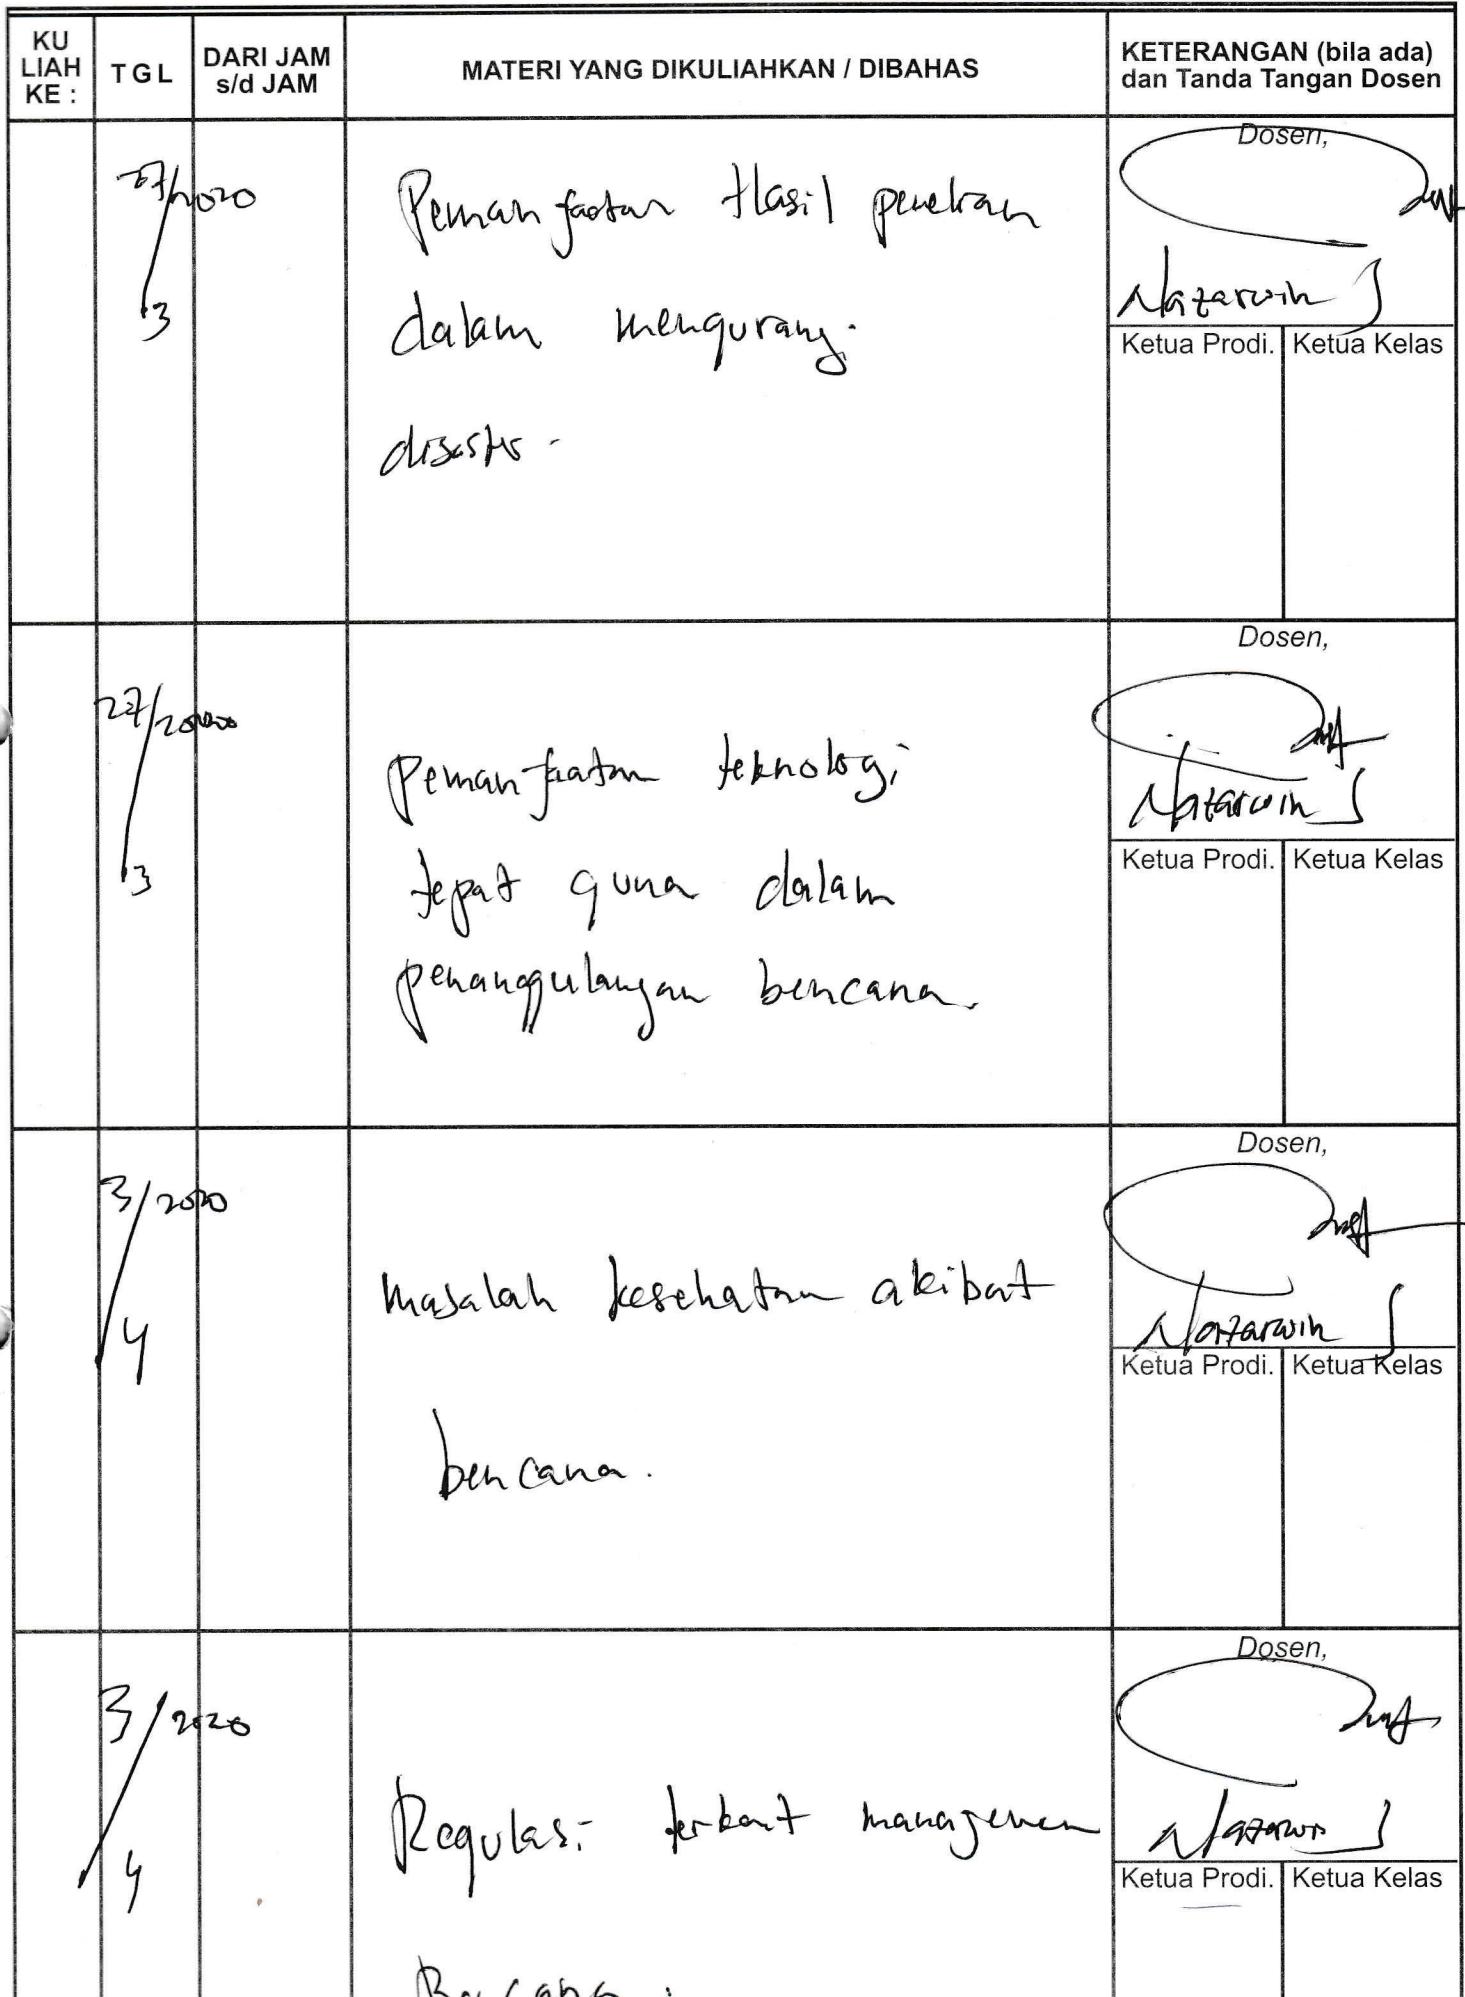 KU LIAH KE :
TGL
DARI JAM s/d JAM
MATERI YANG DIKULIAHKAN / DIBAHAS
KETERANGAN (bila ada) dan Tanda Tangan Dosen
27/2020
3
Pemanfaatan Hasil
dalam mengurangi
disaster.
Dosen,
Nazarwin S
Ketua Prodi. Ketua Kelas
27/2020
3
pemanfaatan teknologi
tepat guna dalam
penanggulangan bencana.
Dosen,
Nazarwin S
Ketua Prodi. Ketua Kelas
3/2020
4
masalah kesehatan akibat
bencana.
Dosen,
Nazarwin S
Ketua Prodi. Ketua Kelas
3/2020
4
Regulasi terkait managemen
Bencana.
Dosen,
Nazarwin S
Ketua Prodi. Ketua Kelas